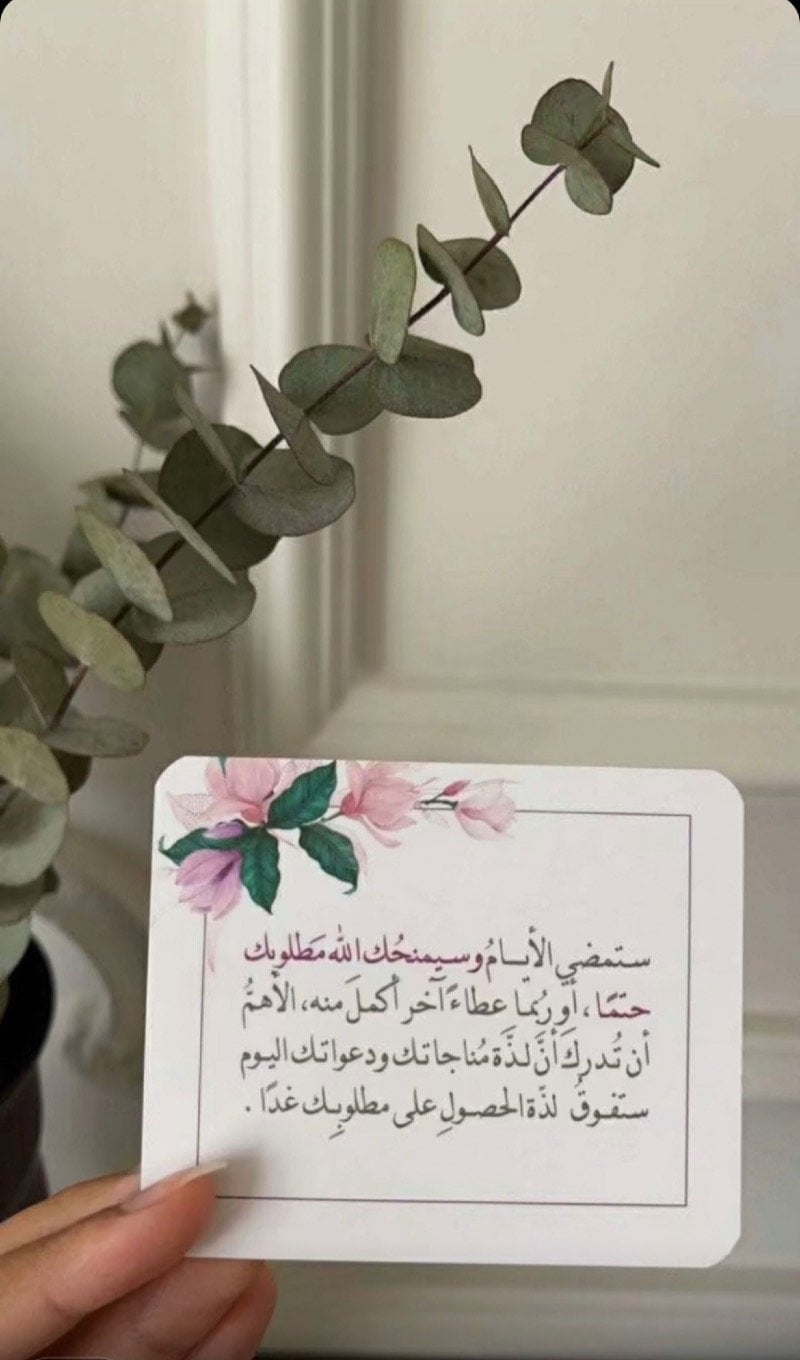 ستمضي الأيامُ وسيمنحُك الله مَطلوبك
حتمًا، أو رُبما عطاءً آخر أكملَ منه، الأهمُّ
أن تُدركَ أنَّ لذَّة مُناجاتك ودعواتك اليوم
ستفوقُ لذّة الحصولِ على مطلوبِك غدًا .